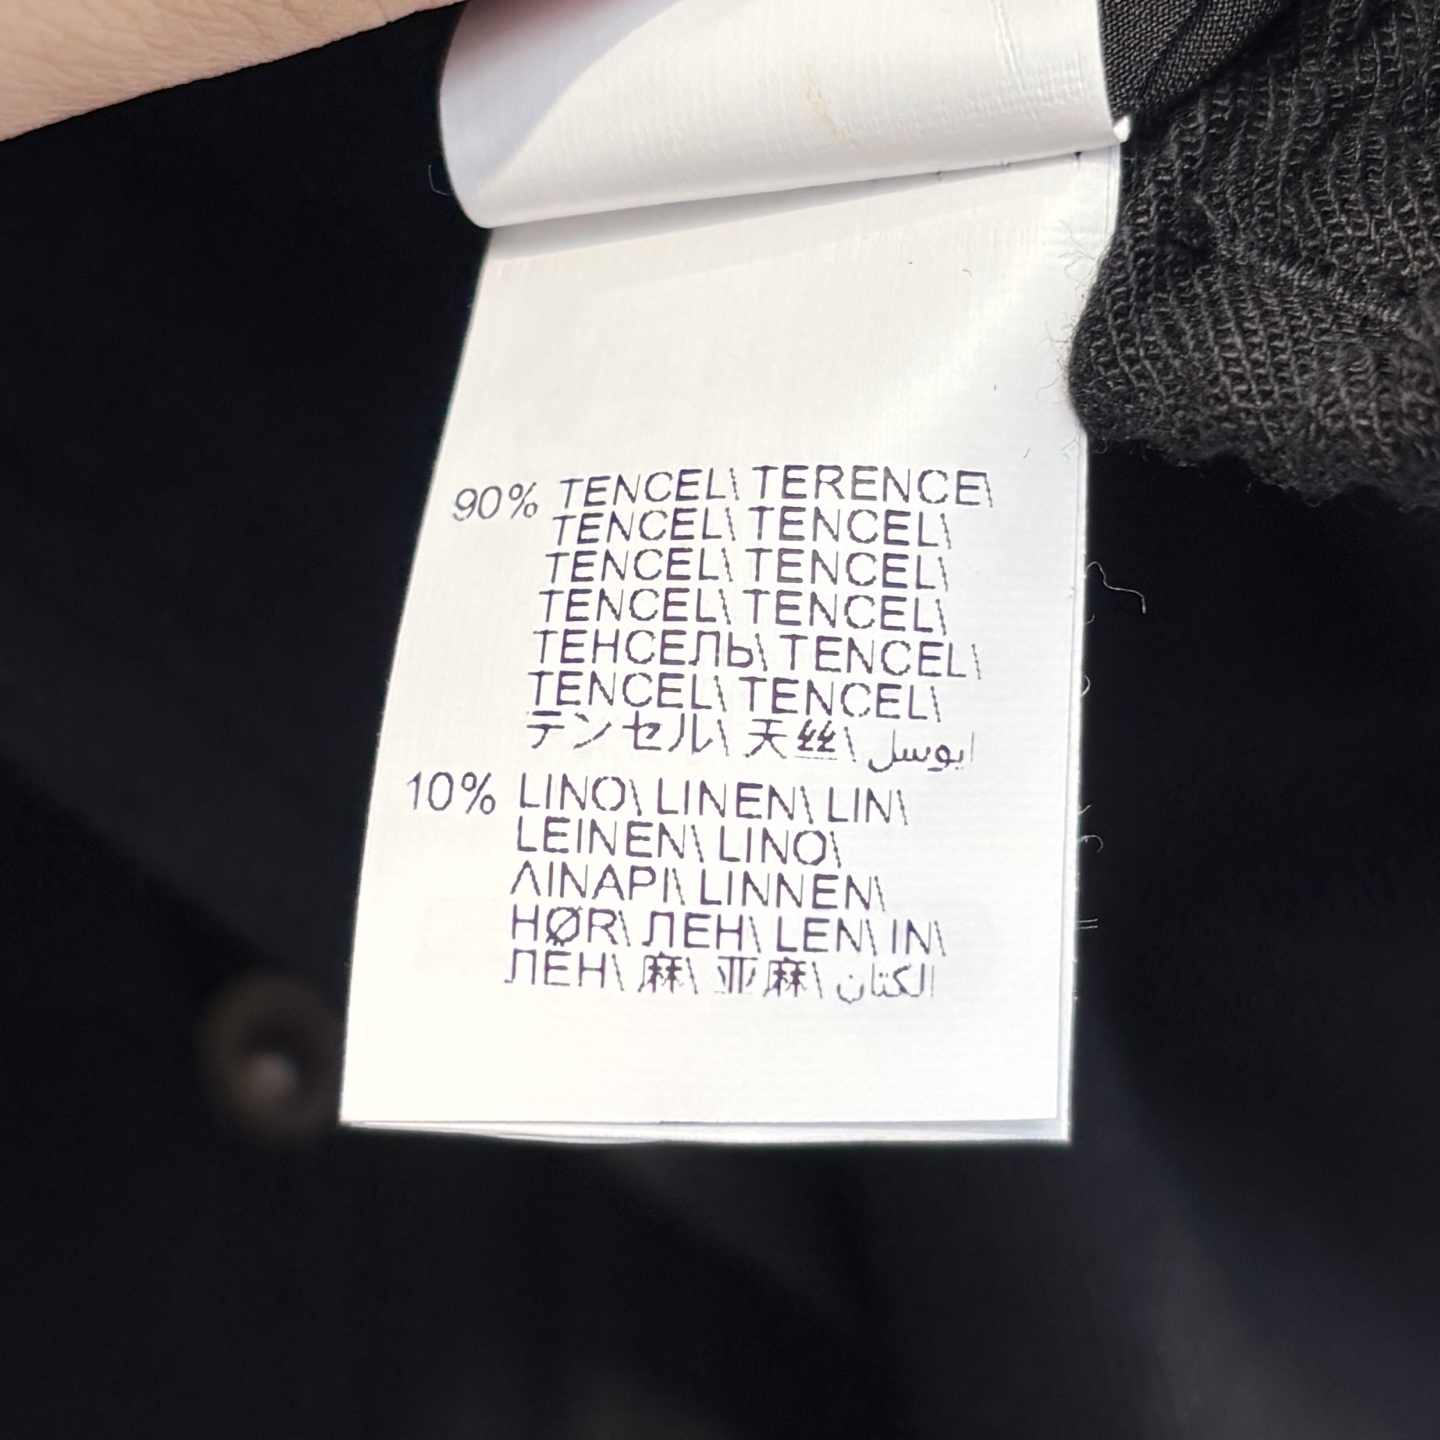 90% TENCEL\ TERENCE\
TENCEL\ TENCEL\
TENCEL\ TENCEL\
TENCEL\ TENCEL\
ТЕНСЕЛЬ\ TENCEL\
TENCEL\ TENCEL\
テンセル\ 天丝\ ايوسل
10% LINO\ LINEN\ LIN\
LEINEN\ LINO\
ΛΙΝΑΡΙ\ LINNEN\
HØR\ ЛЕН\ LEN\ IN\
ЛЕН\ 麻\ 亚麻\ الكتان